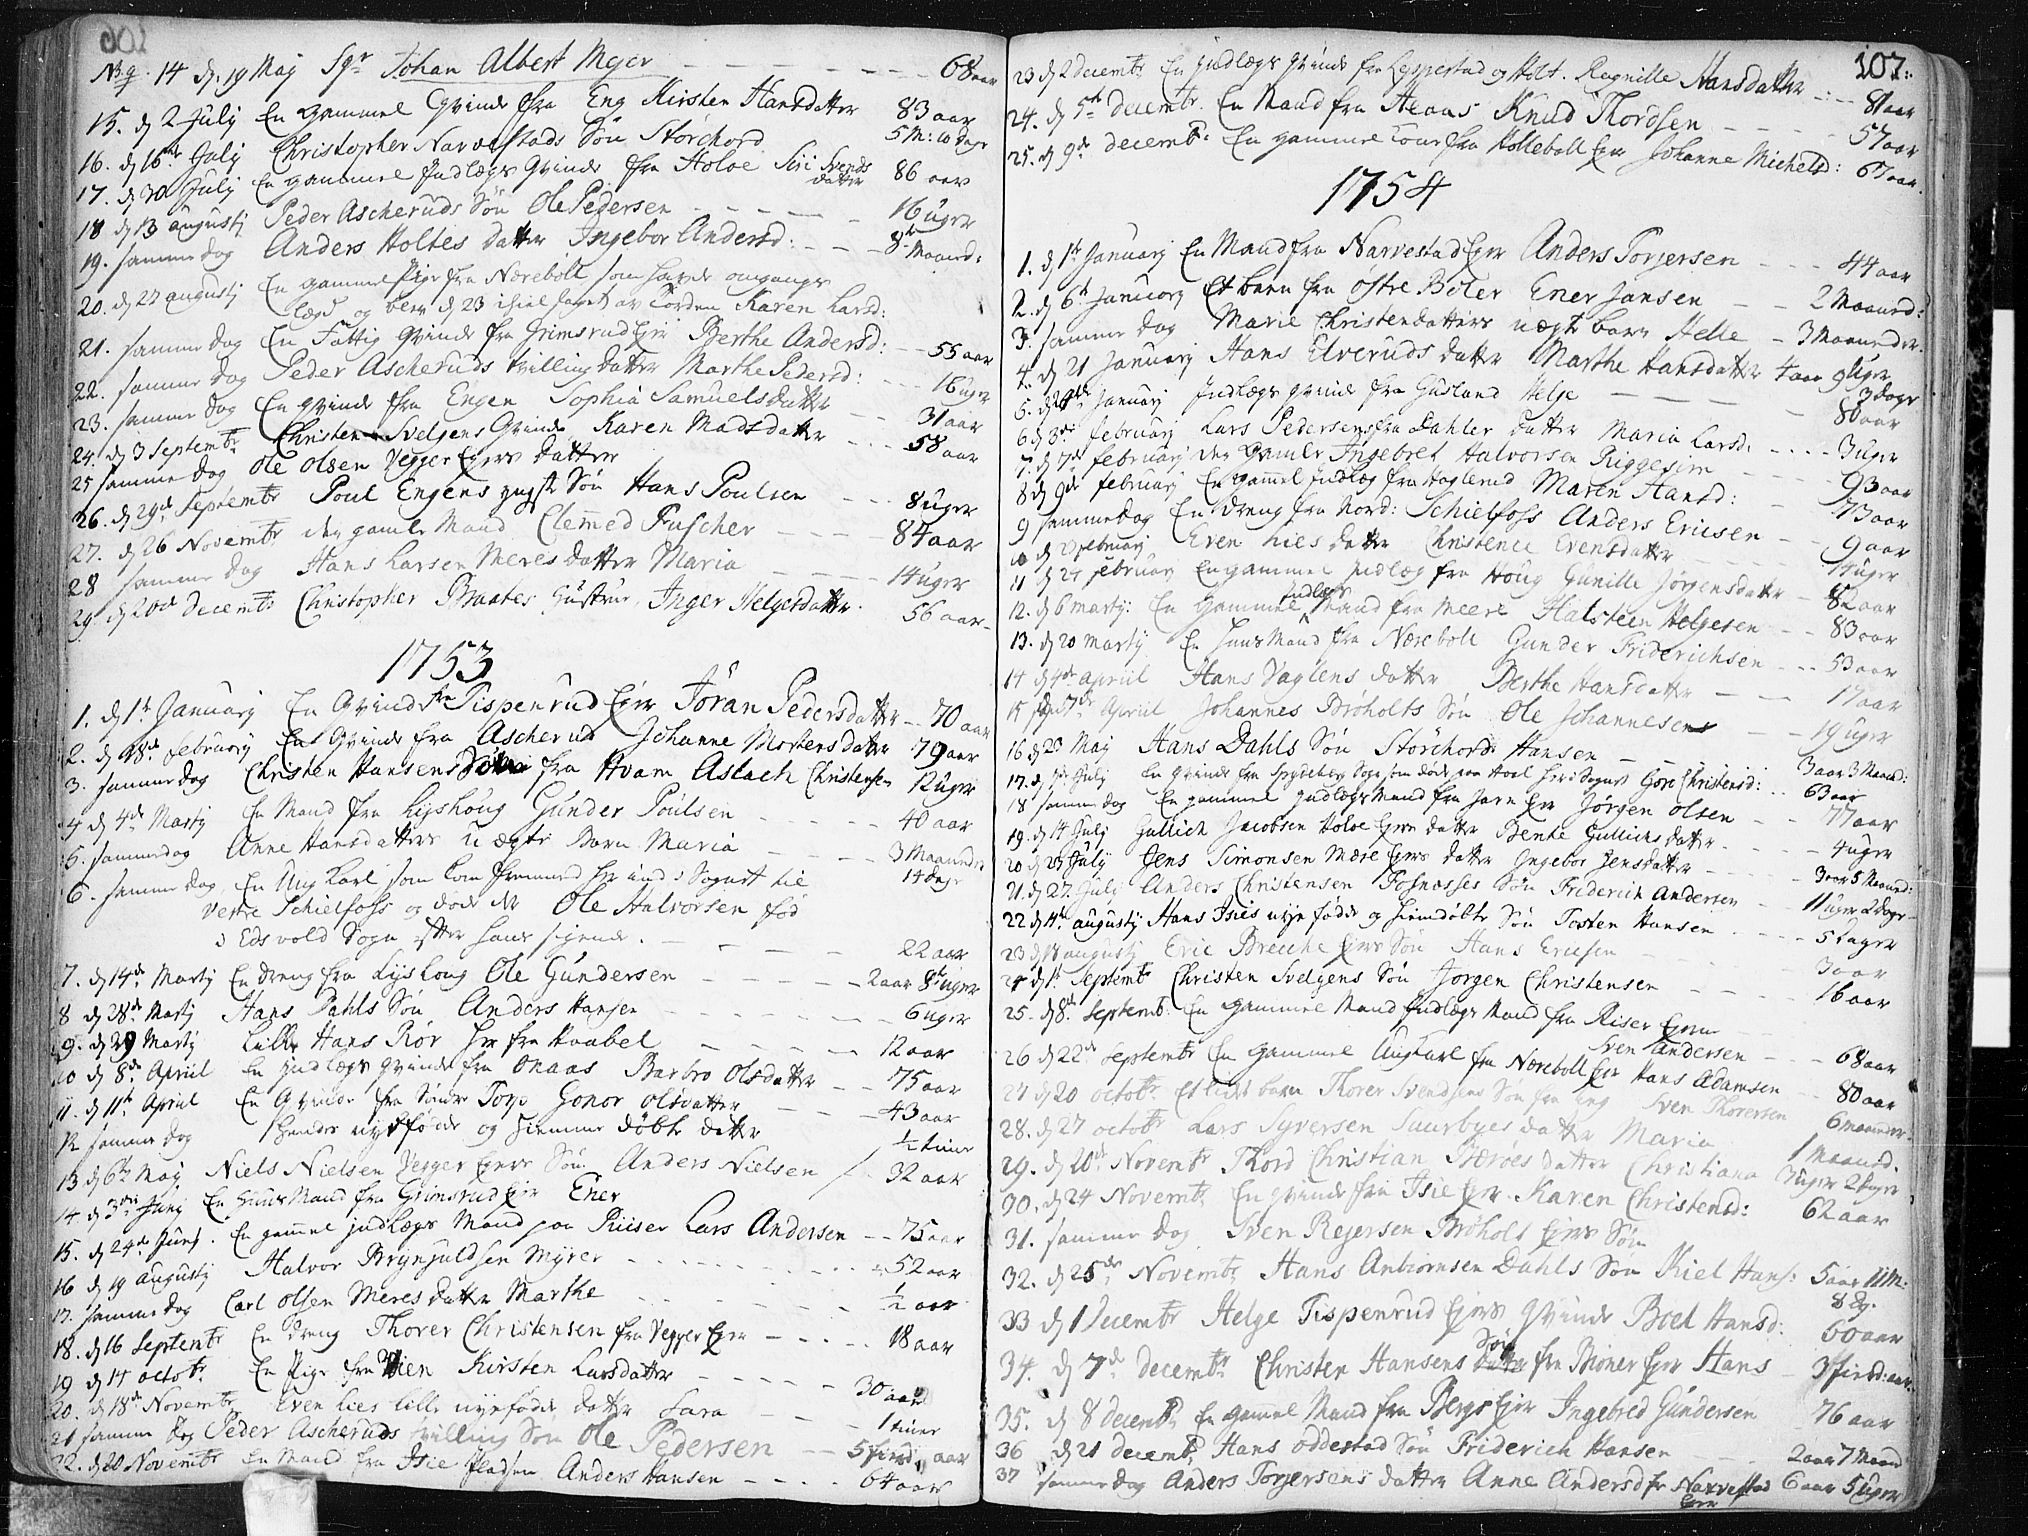 14 d. 19 Maj Sgr Johan Albert Mejer 68 aar
15. d 2 July En gammel Qvinde fra Eng Kirsten Hansdatter 83 aar
16. d 16 July Christopher Narvestads Søn Storchord 5 M: 10 dage
17. d 30 July En gammel Indlægs Qvinde fra Holoe Siri Svends datter 86 aar
18 d 13 augustj Peder Ascheruds Søn Ole Pedersen 16 uger
19. samme dag Anders Holtes datter Ingebor Andersd: 8 Maaned:
20. d 27 augustj En gammel Pige fra Nærebøll som havde omgangs
lægd og blev d 23 ihiel slaget av Torden Karen Larsd:
21. samme dag En Fattig Qvinde fra Grimsrud Eier Berthe Andersd: 55 aar
22. samme dag Peder Ascheruds tvilling datter Marthe Pedersd: 16 uger
23. samme dag En Qvinde fra Engen Sophia Samuelsdatter 31 aar
24. d 3 Septembr Christen Svelgens Qvinde Karen Madsdatter 58 aar
25 samme dag Ole Olsen Vegger Eiers datter
26. d 29de Septembr Poul Engens yngste Søn Hans Poulsen 8 uger
27. d 26 Novembr den gamle Mand Clemmed Fuscher 84 aar
28 samme dag Hans Larsen Meres datter Maria 14 uger
29. d 20de Decembr Christopher Braates Hustrue, Inger Helgesdatter. 56 aar
1753
1. d 1t Januarj En Qvinde fra Tispenrud Eier Jöran Pedersdatter 70 aar
2. d 18de februarj En Qvinde fra Ascherud Johanne Mortensdatter 79 aar
3. samme dag Christen Hansens Søn fra Hvam Aslach Christensen 12 uger
4 d 4de Martj En Mand fra Lijshoug Gunder Poulsen 40 aar
5. samme dag Anne Hansdatters uægte Barn Maria 3 Maaneder 14 dage
6. samme dag, En Ung Karl som kom fremmed her ind i Sognet til
Vestre Schielfoss og døde der Ole Halvorsen fød
i Edsvold Sogn efter hans sigende. 22 aar
7. d 14de Martj En dreng fra Lijshoug Ole Gundersen 2 aar 8 uger
8 d 28de Martj Hans Dahls Søn Anders Hansen 6 uger
9. d 29 Martj Lille Hans Rör 12 aar
10 d 8de Apriil En Indlægs Qvinde fra Onaas Barbro Olsdatter 75 aar
11. d 11te Apriil En Qvinde fra Søndre Torp Gonor Olsdatter 43 aar
12 samme dag Hendes nyefødde og hiemme døbte datter 1/2 time
13 d 6te Maj Niels Nielsen Vegger Eiers Søn Anders Nielsen 32 aar
14 d 3die Junj En Huus Mand fra Grimsrud Eier Ener
15. d 24de Junj. En gamel Indlægs Mand paa Riiser Lars Andersen 75 aar
16 d 19 augustj Halvor Brynjuldsen Myrer 52 aar
17. samme dag Carl Olsen Meres datter Marthe 1/2 aar
18. d 16 Septembr En dreng Thorer Christensen fra Vegger Eier 18 aar
19 d 14 octobr. En Pige fra Kirsten Larsdatter 30 aar
20. d 18de Novembr Even Lies lille nyefødde datter Sara 1 time
21 samme dag Peder Ascheruds tvilling Søn Ole Pedersen 5 fierd. aar
22. d 20 Novembr En Mand fra Isie Pladsen Anders Hansen 64 aar
107.
23 d 2 decembr En Indlægs Qvinde fra Leppestad og Holt. Ragnille Hansdatter 81 aar
24. d 5te decembr. En Mand fra Heaas Knud Thordsen 57 aar
25. d 9de decembr. En gammel Kone fra Kollebøll Eier Johanne Michelsd: 67 aar.
1754
1. d 1te Januarj En Mand fra Narvestad Eier Anders Torjersen 44 aar
2. d 6te Januarj Et barn fra østre Böler Ener Jansen 2 Maaned:
3. samme dag Marie Christensdatters uægte barn Helle 3 Maaneder.
4. d 21 Januarj Hans Elveruds datter Marthe Hansdatter 4 aar 9 uger 3 dage
5. Januarj Indlægs Qvinde fra Gusland Helge 80 aar
6 d 3die februarj Lars Pedersens fra Dahler datter Maria Larsd: 3 uger
7. d 7de februarj den gamle Ingebret Halvorsen Riggesim 93 aar
8 d 9de februarj En gamel Indlæg fra Haglerud Maren Hansd: 73 aar
9 samme dag En dreng fra Nord: Schielfoss Anders Ericsen 9 aar
10 d februarj Even Lies datter Christence Evensdatter 14 uger
11 d 27 februarj En gammel Indlæg fra Houg Gunille Jørgensdatter 82 aar
12. d 6 martj: En Gammel Indlægs Mand fra Meere Halsteen Helgesen 83 aar
13. d 20 martj En huus Mand fra Nærebøll Gunder Friderichsen 53 aar
14 d 4de apriil Hans Vaglens datter Berthe Hansdatter 17 aar
15 d 7de Apriil Johannes Brøholts Søn Ole Johannesen 19 uger
16 d 23 Maj Hans Dahls Søn Storchord Hansen 3 aar 3 Maaned:
17. d July En Qvinde fra Spydeberg Sogn som døde paa Hoel her i Sognet Gore Christensd: 63 aar
18 samme dag En gammel Indlægs Mand fra Eier Jørgen Olsen 77 aar
19. d 14 July Gullich Jacobsen Holoe Eiers datter Bente Gullichsdatter 4 uger
20 d 25 July Jens Simonsen Mære Eiers datter Ingebor Jensdatter 3 aar 5 Maaned:
21. d 27. July Anders Christensen Fosnæsses Søn Friderich Andersen 11 uger 2 dage
22 d 4te augustj Hans Isies nyefødde og hiemdøbte Søn Tosten Hansen 5 dager
23 d 18 augustj Eric Brecche Eiers Søn Hans Ericsen 3 aar
24 d 1te Septembr Christen Svelgens Søn Jørgen Christensen 16 aar
25. d 8de Septembr: En gammel Mand Indlægs Mand fra Riser Eier Sven Andersen 68 aar
26 d 22de Septembr En gammel Ungkarl fra Nærebøll Eier Hans Adamsen 80 aar
27 d 20 octobr. Et lidet barn Thorer Svendsens Søn fra Eng Sven Thorersen 6 maaneder
28. d 27 octobr Lars Syversen Suurbyes datter Maria 1 Maaned.
29. d 20de Novembr Thord Christian datter Christiana 3 uger 2 dager
30. d 24 Novembr. En Qvinde fra Isie Eier. Karen Christensd: 62 aar
31. samme dag Sven Rejersen Brøholt Eiers Søn
32. d 25de Novembr, Hans Anbiørnsen Dahls Søn Kiel Hans: 5 aar 11 M: 8 dg.
33 d 1 Decembr Helge Tispenrud Eiers Qvinde Boel Hansd: 60 aar
34. d 7de decembr Christen Hansens Søn fra Bioner Eier Hans 3 fierd: aar.
35. d 8 decembr En gamel Mand fra Bergs Eier Ingebred Gundersen 76 aar
36 d 21 decembr, Hans Oddestad Søn Friderich Hansen 2 aar 7 Maaned
37 samme dag Anders Torjersens datter Anne Andersd fr Narvestad Eier 6 aar 5 uger